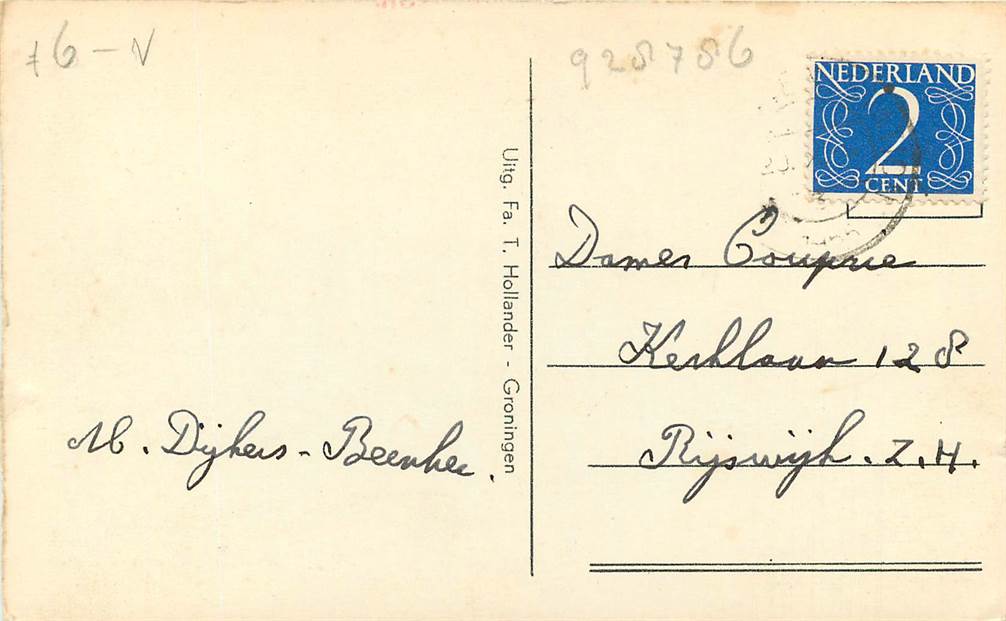 76 - N
928786
NEDERLAND
2
CENT
Uitg. Fa. T. Hollander - Groningen
Dames Couprie
Kerklaan 128
Rijswijk. Z.H.
M. Dijkers - Beenker.